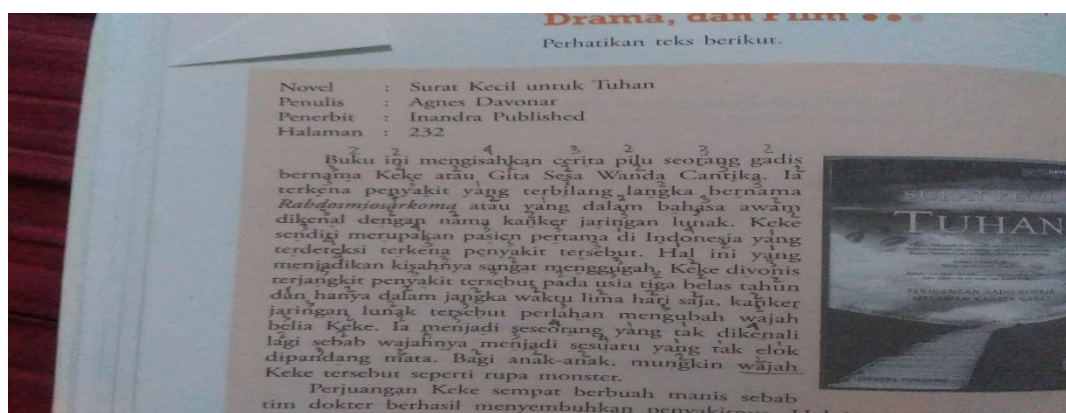 Drama, dan Film
Perhatikan teks berikut.
Novel : Surat Kecil untuk Tuhan
Penulis : Agnes Davonar
Penerbit : Inandra Published
Halaman : 232
Buku ini mengisahkan cerita pilu seorang gadis
bernama Keke atau Gita Sesa Wanda Cantika. Ia
terkena penyakit yang terbilang langka bernama
Rabdosmiosarkoma atau yang dalam bahasa awam
dikenal dengan nama kanker jaringan lunak. Keke
sendiri merupakan pasien pertama di Indonesia yang
terdeteksi terkena penyakit tersebut. Hal ini yang
menjadikan kisahnya sangat menggugah. Keke divonis
terjangkit penyakit tersebut pada usia tiga belas tahun
dan hanya dalam jangka waktu lima hari saja, kanker
jaringan lunak tersebut perlahan mengubah wajah
belia Keke. Ia menjadi seseorang yang tak dikenali
lagi sebab wajahnya menjadi sesuatu yang tak elok
dipandang mata. Bagi anak-anak, mungkin wajah
Keke tersebut seperti rupa monster.
Perjuangan Keke sempat berbuah manis sebab
tim dokter berhasil menyembuhkan
TUHAN
PERJUANGAN GADIS REMAJA
MELAWAN KANKER GANAS